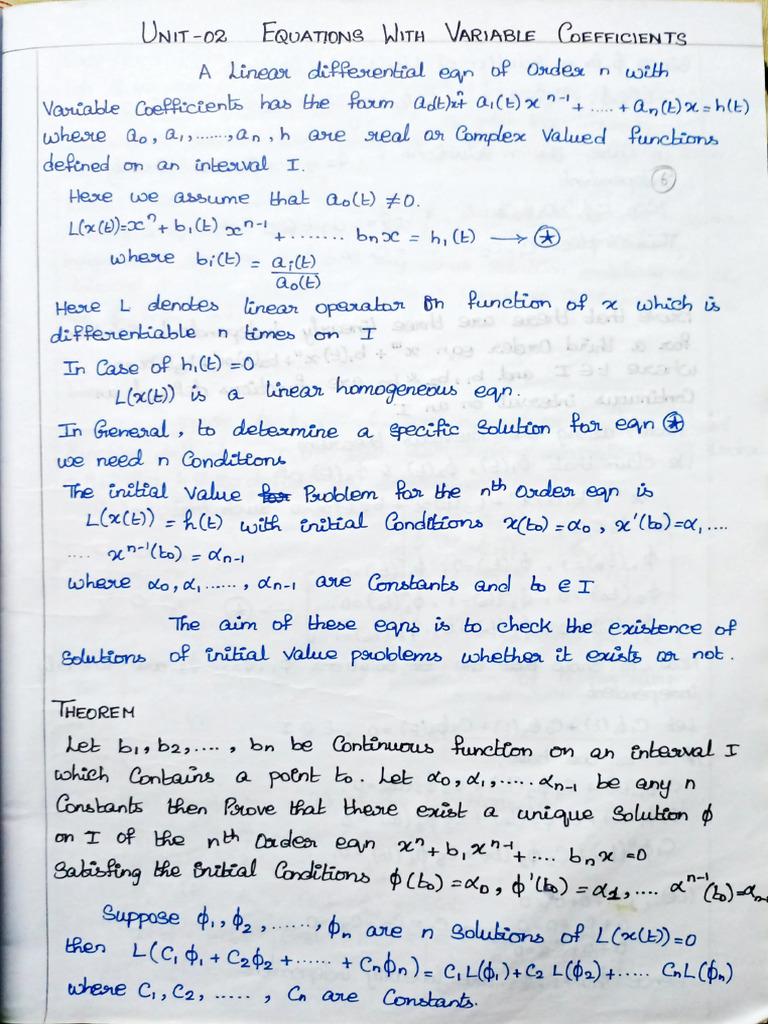 UNIT-02 EQUATIONS WITH VARIABLE COEFFICIENTS
A Linear differential eqn of Order n with
Variable Coefficients has the form a₀(t)xⁿ + a₁(t) xⁿ⁻¹ + ..... + aₙ(t)x = h(t)
where a₀, a₁, ......., aₙ, h are real or Complex Valued functions
defined on an interval I.
6
Here we assume that a₀(t) ≠ 0.
L(x(t)) = xⁿ + b₁(t) xⁿ⁻¹ + ........ bₙx = h₁(t) → ⊛
where bᵢ(t) = aᵢ(t)
a₀(t)
Here L denotes linear operator on function of x which is
differentiable n times on I
In Case of h₁(t) = 0
L(x(t)) is a linear homogeneous eqn.
In General, to determine a specific solution for eqn ⊛
we need n Conditions
The initial value Problem for the nth Order eqn is
L(x(t)) = h(t) with initial Conditions x(t₀) = α₀, x'(t₀) = α₁ ....
.... xⁿ⁻¹(t₀) = αₙ₋₁
where α₀, α₁ ......, αₙ₋₁ are Constants and t₀ ∈ I
The aim of these eqns is to check the existence of
Solutions of initial value problems whether it exists or not.
THEOREM
Let b₁, b₂, ...., bₙ be Continuous function on an interval I
which Contains a point t₀. Let α₀, α₁, ..... αₙ₋₁ be any n
Constants then Prove that there exist a unique Solution ϕ
on I of the nth Order eqn xⁿ + b₁xⁿ⁻¹ + .... bₙx = 0
Satisfing the initial Conditions ϕ(t₀) = α₀, ϕ'(t₀) = α1, .... αⁿ⁻¹(t₀) = αₙ₋
Suppose ϕ₁, ϕ₂, ......, ϕₙ are n Solutions of L(x(t)) = 0
then L(C₁ϕ₁ + C₂ϕ₂ + ...... + Cₙϕₙ) = C₁L(ϕ₁) + C₂ L(ϕ₂) + ..... CₙL(ϕₙ)
where C₁, C₂, ....., Cₙ are Constants.